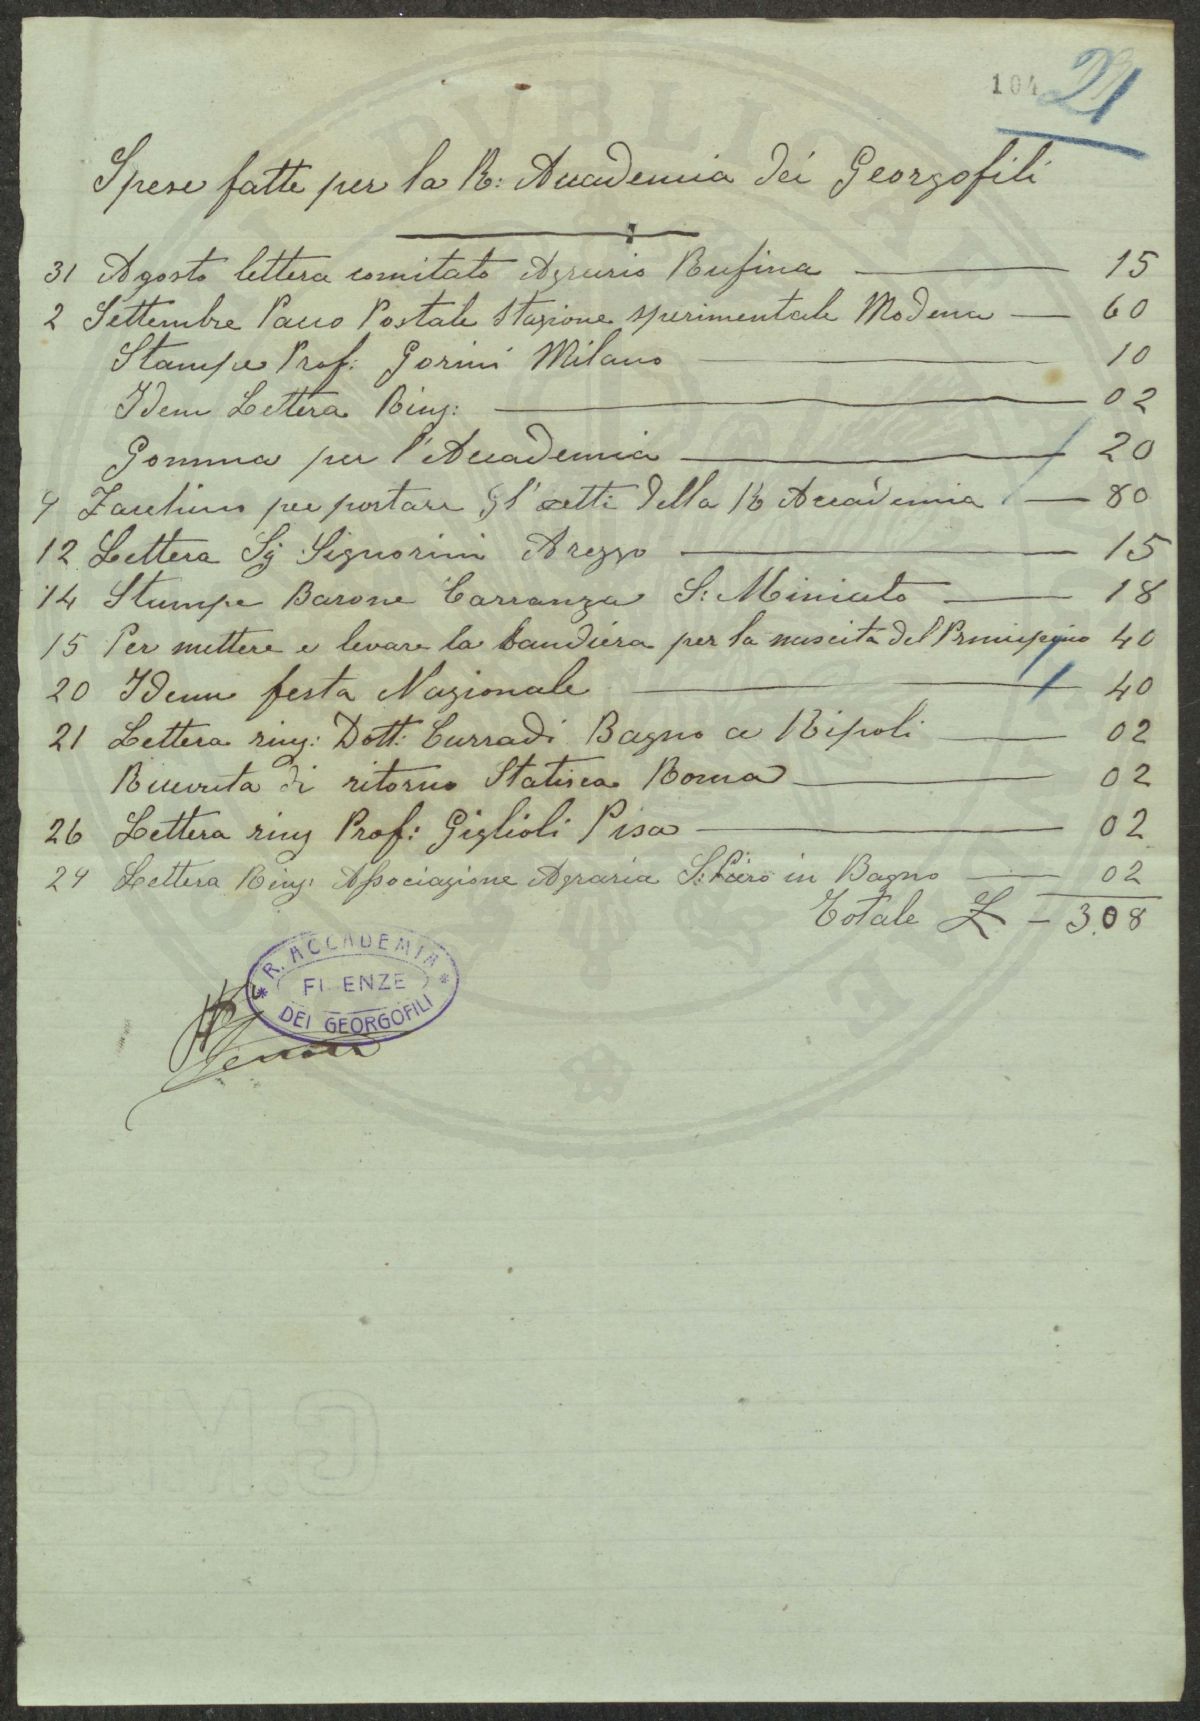 104
21
Spese fatte per la R: Accademia dei Georgofili
31 Agosto lettera comitato Agrario Rufina 15
2 Settembre Pacco Postale Stazione sperimentale Modena 60
Stampe Prof: Gorini Milano 10
Idem Lettera Ring: 02
Gomma per l'Accademia 20
9 per portare gl' della R Accademia 80
12 Lettera Sg Signorini Arezzo 15
14 Stampe Barone Carranza S: Miniato 18
15 Per mettere e levare la bandiera per la nascita del Principino 40
20 Idem festa Nazionale 40
21 Lettera ring: Dott: Curradi Bagno a Ripoli 02
Ricevuta di ritorno Roma 02
26 Lettera ring Prof: Giglioli Pisa 02
29 Lettera Ring: Associazione Agraria S: Piero in Bagno 02
Totale £ - 3.08
R. ACCADEMIA
FIRENZE
DEI GEORGOFILI